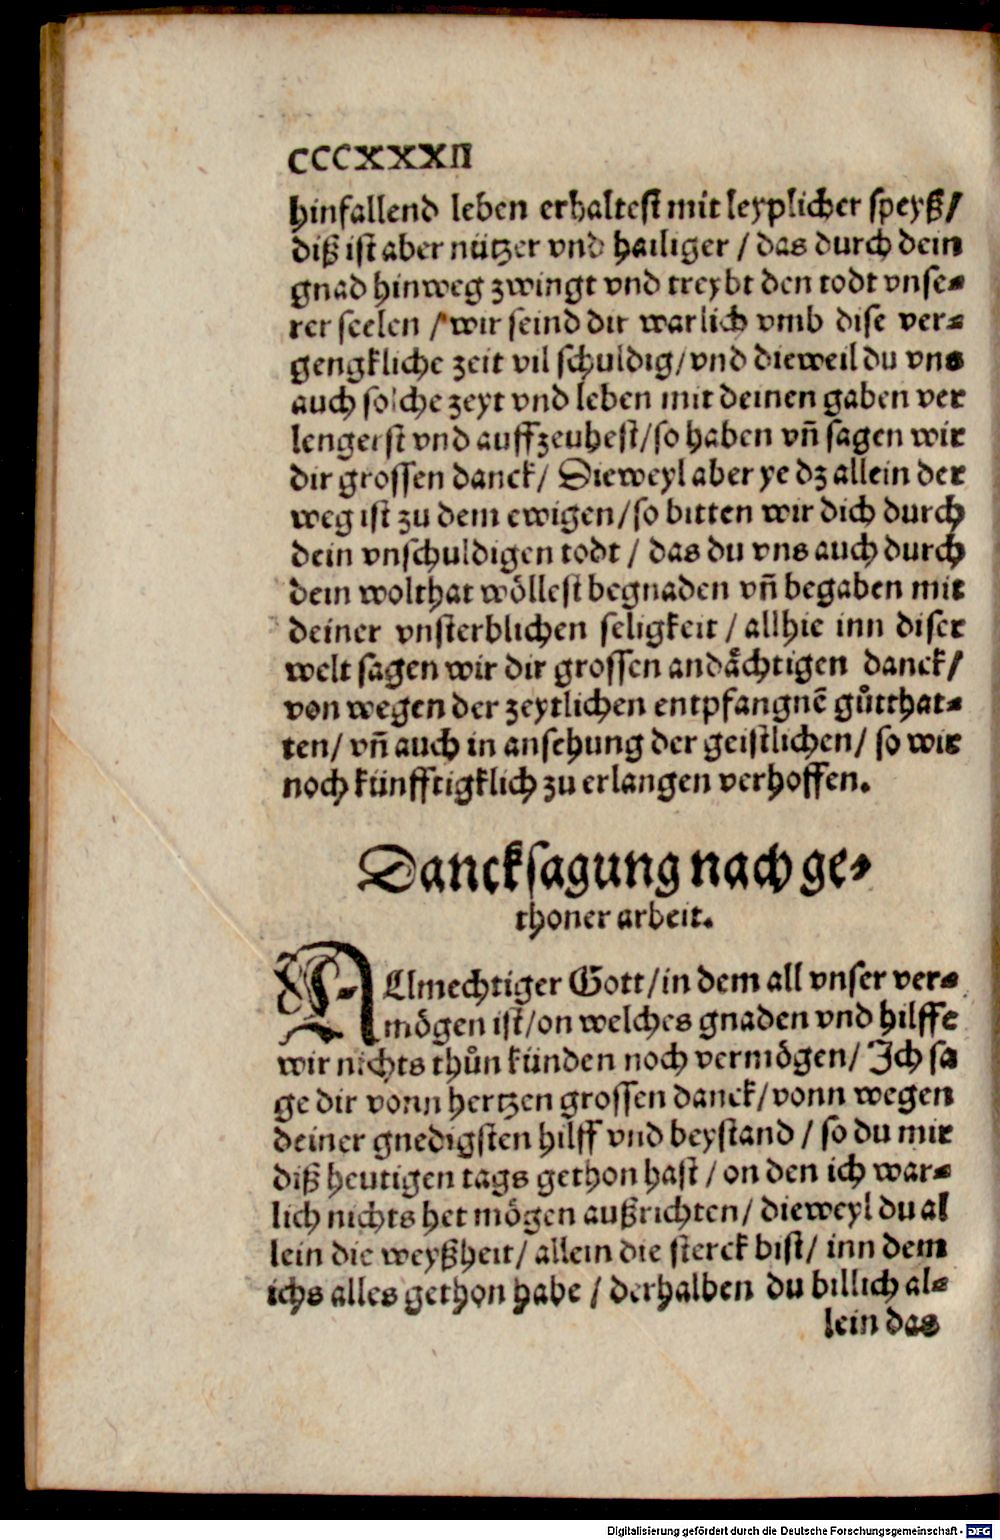 CCCXXXII
hinfallend leben erhaltest mit leyplicher speyß/
diß ist aber nützer vnd hailiger / das durch dein
gnad hinweg zwingt vnd treybt den todt vnse⸗
rer seelen / wir seind dir warlich vmb dise ver⸗
gengkliche zeit vil schuldig/vnd dieweil du vns
auch solche zeyt vnd leben mit deinen gaben ver
lengerst vnd auffzeuhest/so haben vñ sagen wir
dir grossen danck/ Dieweyl aber ye dz allein der
weg ist zu dem ewigen/so bitten wir dich durch
dein vnschuldigen todt / das du vns auch durch
dein wolthat wöllest begnaden vñ begaben mit
deiner vnsterblichen seligkeit / allhie inn diser
welt sagen wir dir grossen andaͤchtigen danck/
von wegen der zeytlichen entpfangnē guͦtthat⸗
ten/ vñ auch in ansehung der geistlichen/ so wir
noch künfftigklich zu erlangen verhoffen.
Dancksagung nach ge⸗
thoner arbeit.
ALlmechtiger Gott/in dem all vnser ver⸗
mögen ist/on welches gnaden vnd hilffe
wir nichts thuͦn künden noch vermögen/ Ich sa
ge dir vonn hertzen grossen danck/vonn wegen
deiner gnedigsten hilff vnd beystand / so du mir
diß heutigen tags gethon hast / on den ich war⸗
lich nichts het mögen außrichten/ dieweyl du al
lein die weyßheit/ allein die sterck bist/ inn dem
ichs alles gethon habe / derhalben du billich al⸗
lein das
Digitalisierung gefördert durch die Deutsche Forschungsgemeinschaft - DFG